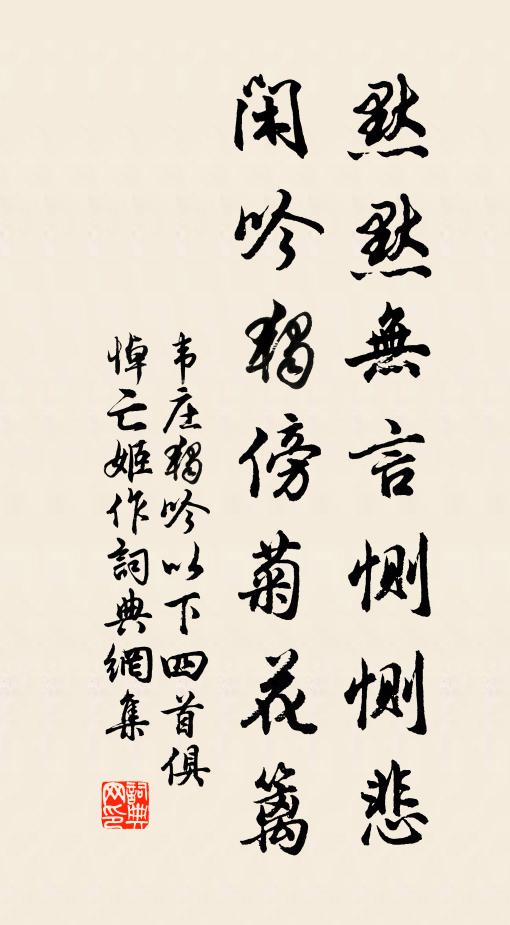 默默無言惻惻悲
閑吟獨傍菊花籬
韦庄獨吟以下四首俱
悼亡姬作詞典網集
詞典
网印